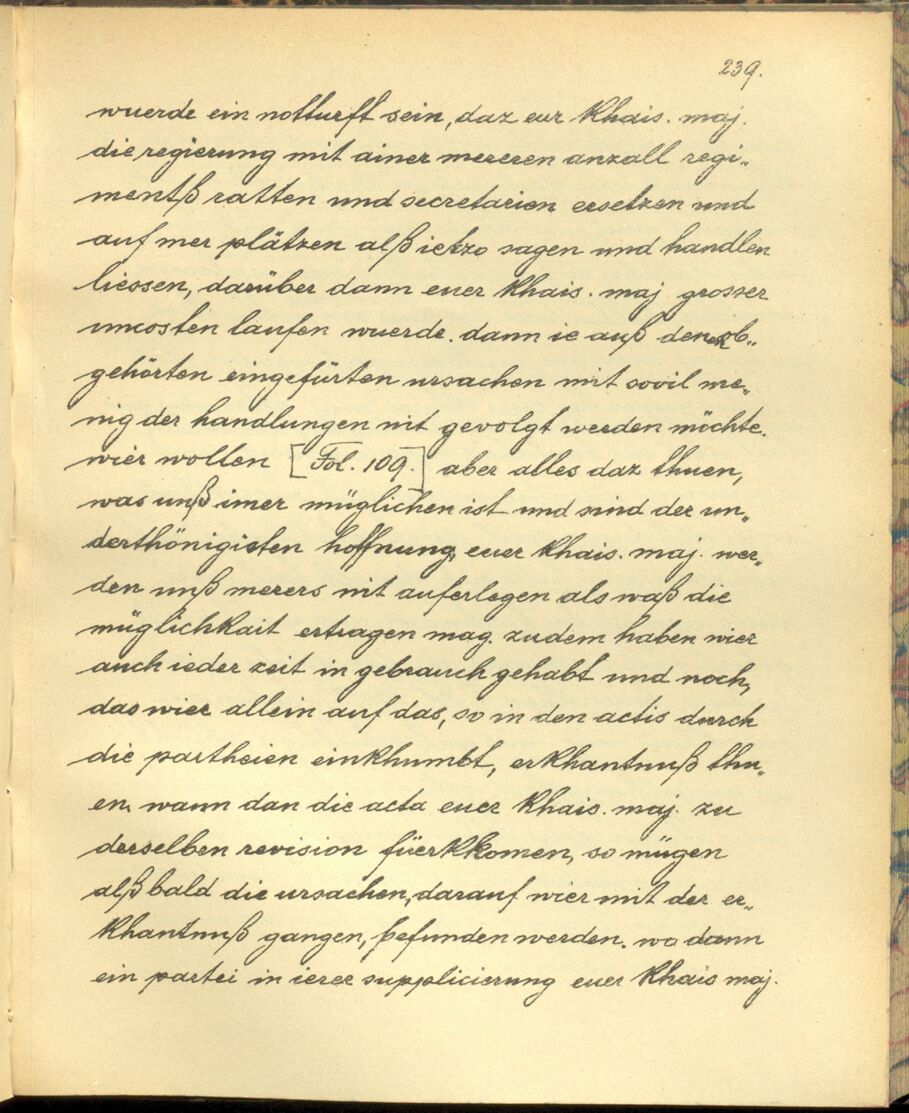 239.
wuerde ein notturft sein, daz eur khais. maj.
die regierung mit ainer mereren anzall regi„
mentß ratten und secretarien ersetzen und
auf mer plätzen alß ietzo sagen und handlen
liessen, darüber dann euer khais. maj grosser
uncosten laufen wuerde. dann ie auß denen ob„
gehörten eingefürten ursachen mit sovil me„
nig der handlungen nit gevolgt werden möchte.
wier wollen [Fol. 109.] aber alles daz thuen,
was unß imer müglichen ist und sind der un„
derthönigisten hoffnung, euer khais. maj. wer„
den unß merers nit auferlegen als waß die
müglichkait ertragen mag. zudem haben wier
auch ieder zeit in gebrauch gehabt und noch,
das wier allein auf das, so in den actis durch
die partheien einkhumbt, erkhantnuß thu„
en, wann dan die acta euer khais. maj. zu
derselben revision füerkkomen, so mügen
alß bald die ursachen, darauf wier mit der er„
khantnuß gangen, befunden werden. wo dann
ein partei in ierer supplicierung euer khais maj.